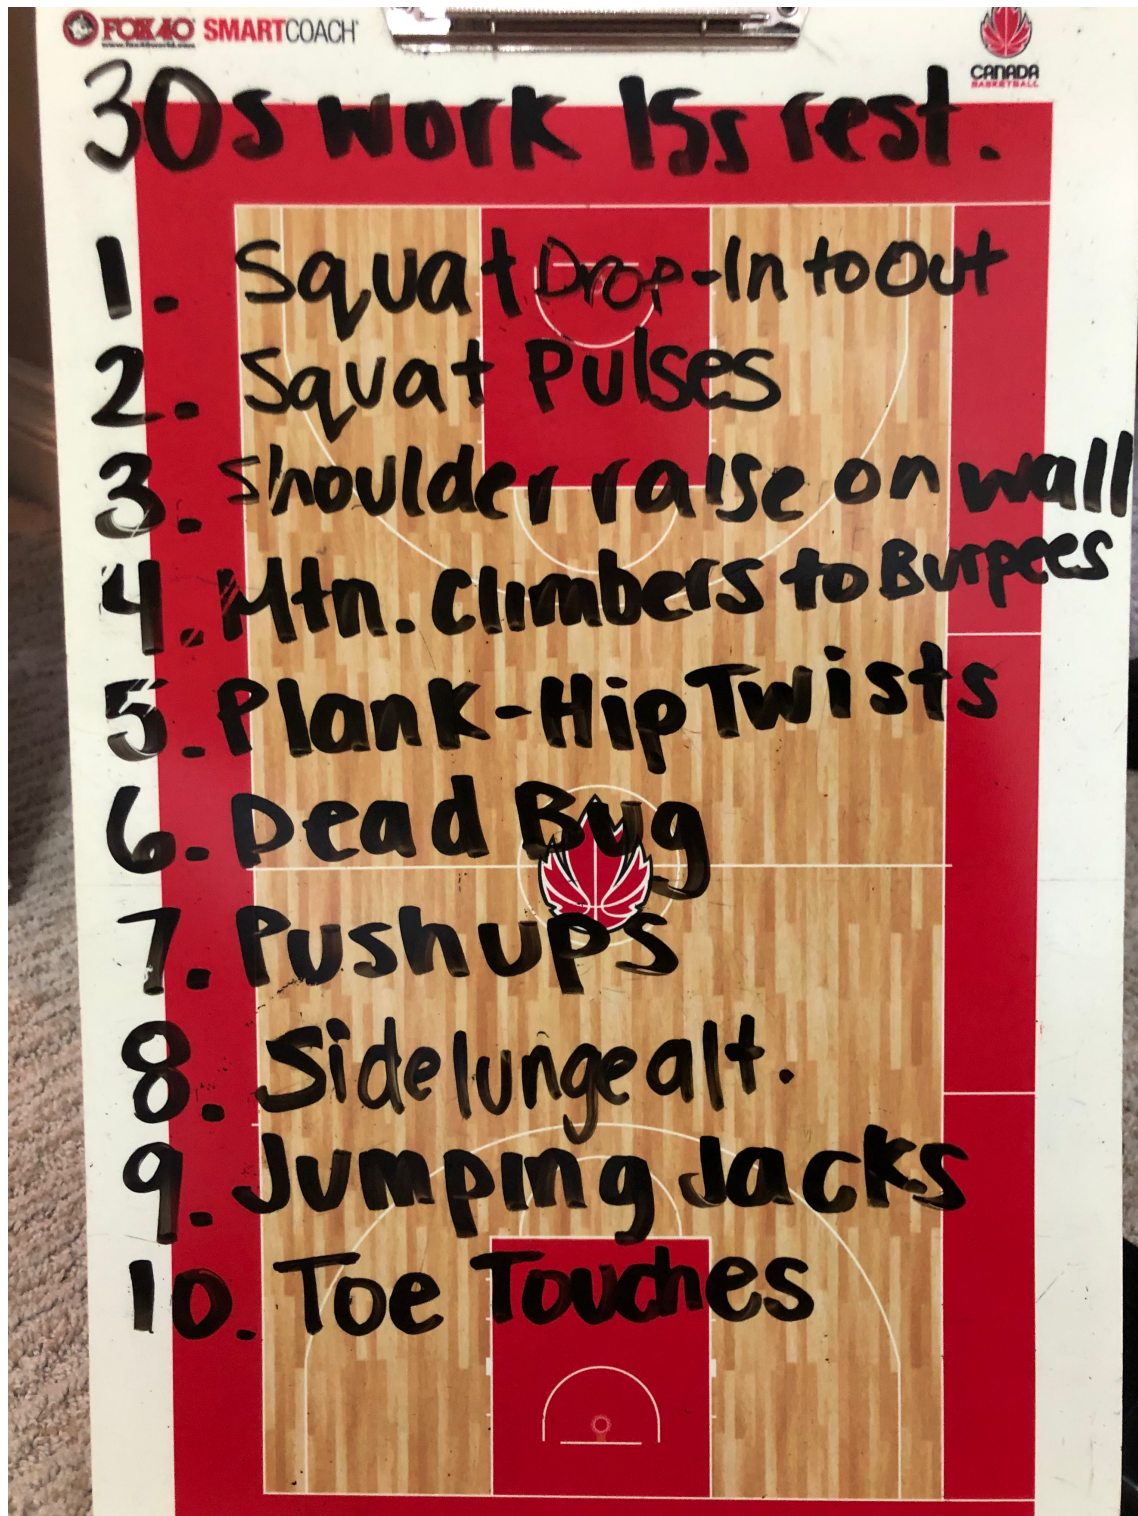 FOX 40 SMARTCOACH
www.fox40world.com
CANADA
BASKETBALL
30s work 15s rest.
1. Squat Drop-In to Out
2. Squat Pulses
3. Shoulder raise on wall
4. Mtn. Climbers to Burpees
5. Plank-Hip Twists
6. Dead Bug
7. Push ups
8. Side lunge alt.
9. Jumping Jacks
10. Toe Touches